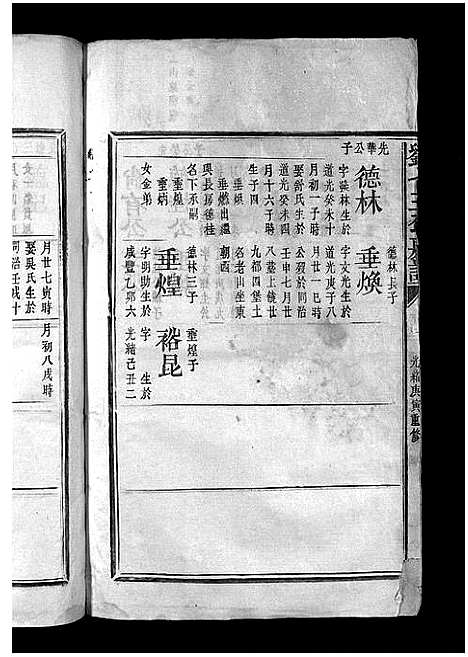 光緒庚寅重修
先華公子
德林
字羙林生於
道光癸未十
月初一子時
娶舒氏生於
道光癸未四
月十六子時
生子四
垂煥
垂燃出繼
與長房德桂
名下承嗣
垂煌
垂炳
女金弟
德林長子
垂煥
字文光生於
道光庚子八
月廿一巳時
公歿於同治
壬申七月廿
八葬上饒廿
九都四堡土
名老山坐東
朝西
德林三子
垂煌
字明助生於
咸豐乙卯六
月廿七寅時
娶吳氏生於
同治壬戌十
月初八戌時
垂煌子
裕昆
字 生於
光緒己丑二